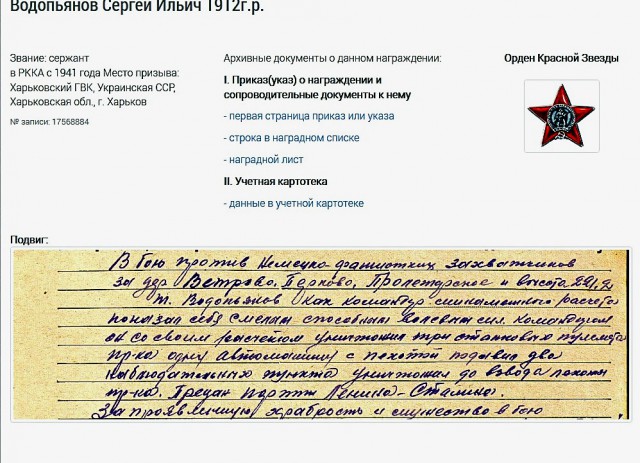 Водопьянов Сергей Ильич 1912г.р.
Звание: сержант
в РККА с 1941 года Место призыва:
Харьковский ГВК, Украинская ССР,
Харьковская обл., г. Харьков
№ записи: 17568884
Архивные документы о данном награждении:
I. Приказ(указ) о награждении и
сопроводительные документы к нему
- первая страница приказ или указа
- строка в наградном списке
- наградной лист
II. Учетная картотека
- данные в учетной картотеке
Орден Красной Звезды
Подвиг:
В бою против Немецко-фашистких захватчиков
за дер Ветрово, Борково, Пролетарское и высота
т. Водопьянов как командир расчета
показал себя смелым способным командиром
он со своим расчетом уничтожил три станковых пулемета
пр-ка одну автомашину с пехотой подавил два
наблюдательных пункта уничтожил до взвода пехоты
пр-ка. Предан партии Ленина-Сталина.
За проявленную храбрость и мужество в бою